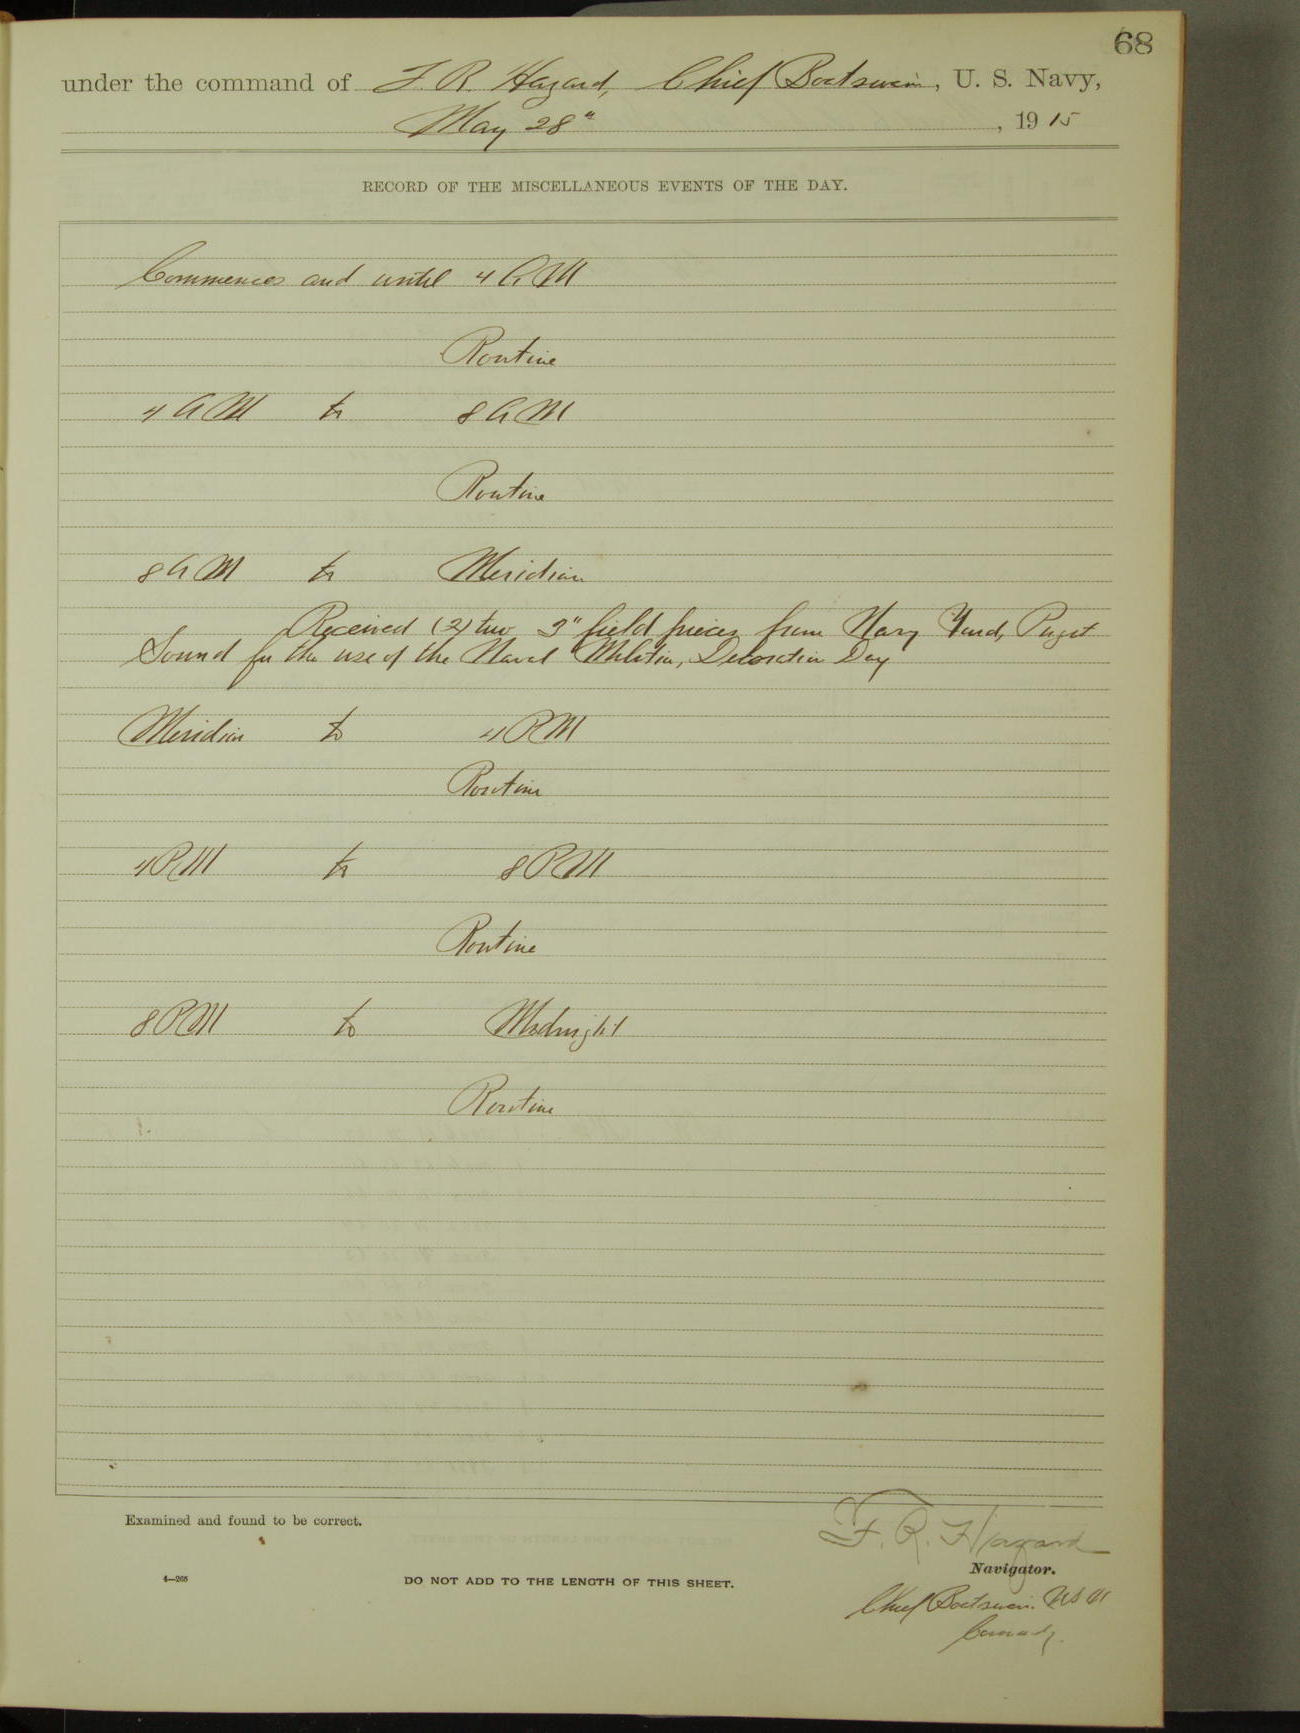 68
under the command of F. R. Hazard, Chief Boatswain, U. S. Navy,
May 28", 1915
RECORD OF THE MISCELLANEOUS EVENTS OF THE DAY.
Commences and until 4 AM
Routine
4 AM to 8 AM
Routine
8 AM to Meridian
Received (2) two 3" field pieces from Navy Yard, Puget
Sound for the use of the Naval Militia, Decoration Day
Meridian to 4 PM
Routine
4 PM to 8 PM
Routine
8 PM to Midnight
Routine
Examined and found to be correct.
F. R. Hazard
Navigator.
4—265
DO NOT ADD TO THE LENGTH OF THIS SHEET.
Chief Boatswain USN